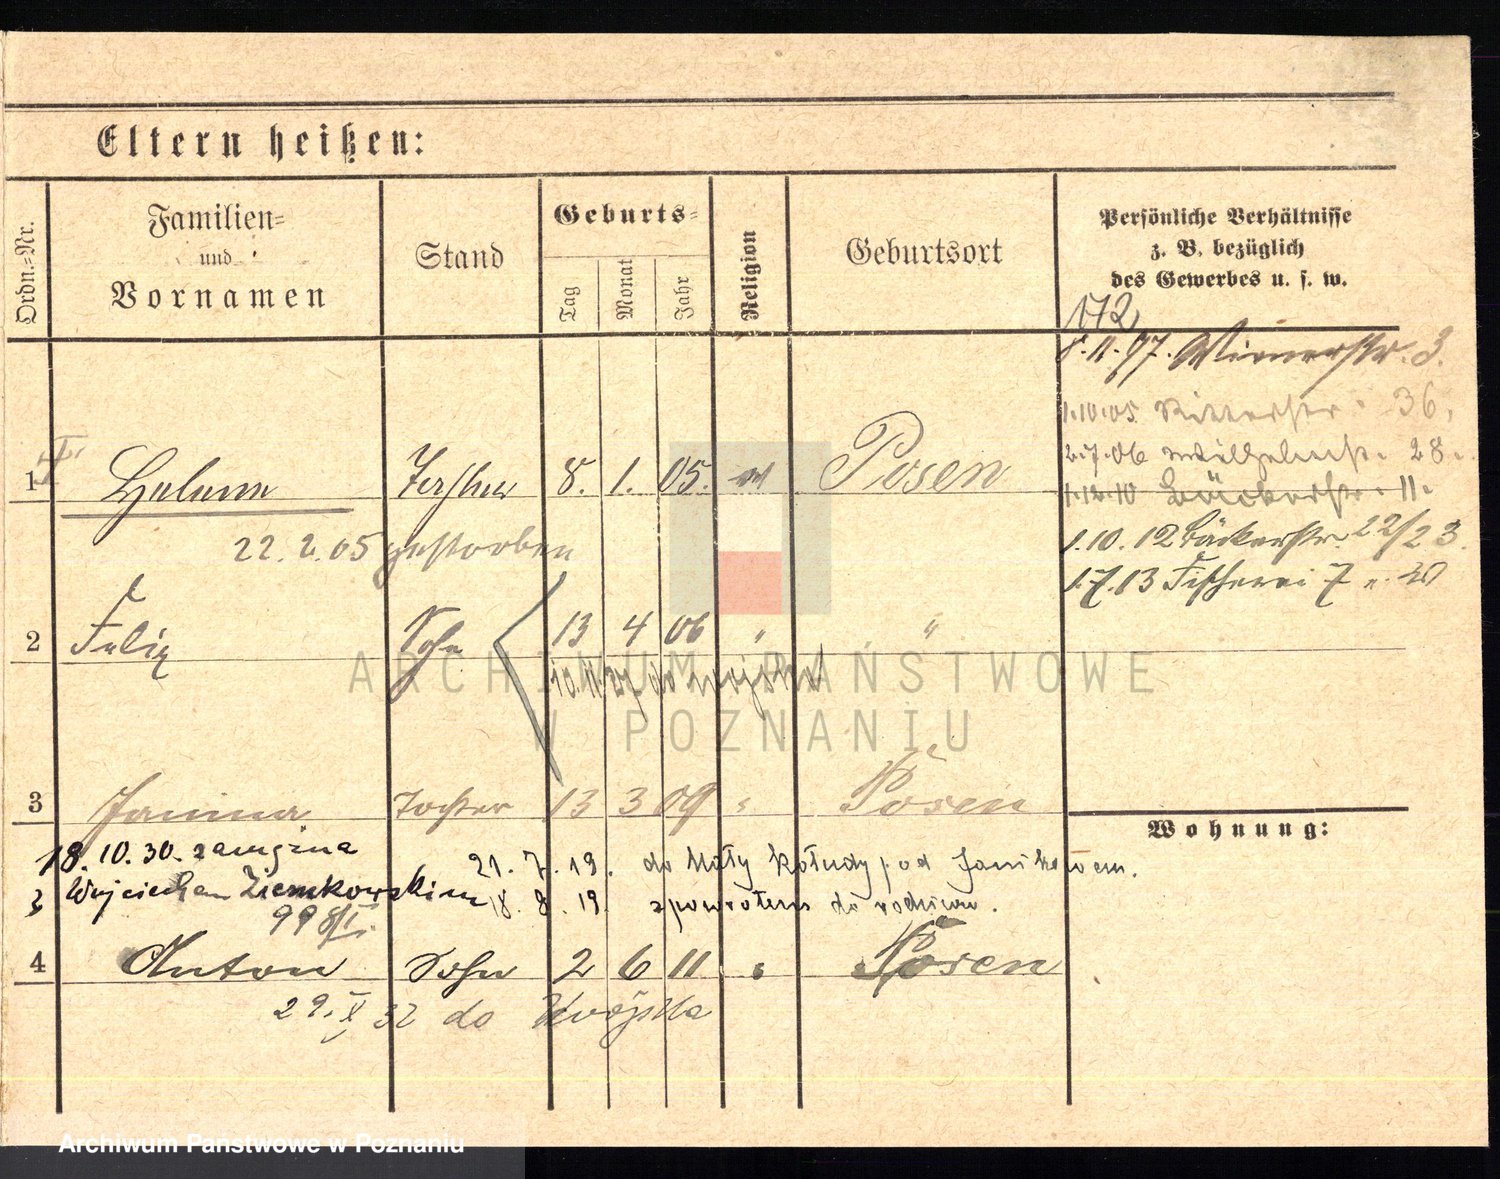 Eltern heißen:
Ordn.-Nr.
Familien-
und
Vornamen
Stand
Geburts-
Tag
Monat
Jahr
Religion
Geburtsort
Persönliche Verhältnisse
z. B. bezüglich
des Gewerbes u. s. w.
172
8.11.97. Wienerstr. 3.
1.10.05. Ritterstr. 36.
2.7.06 Wilhelmstr. 28.
1.12.10 Bäckerstr. 11.
1.10.12 Bäckerstr. 22/23.
1.7.13 Fischerei 7
1 Helene Tochter 8. 1. 05. Posen
22.2.05 gestorben
2 Felix Sohn 13 4 06 " "
10.11.27 do wojska
3 Janina Tochter 13 3 09 " Posen
Wohnung:
18.10.30. zamężna
21.7.19. do Mały Kołudy pod Janikowem.
Wojciechem Ziemkowskim
18.8.19. zpowrotem do rodziców.
4 Anton Sohn 2 6 11 " Posen
29.X 32 do Wojska
ARCHIWUM PAŃSTWOWE
W POZNANIU
Archiwum Państwowe w Poznaniu